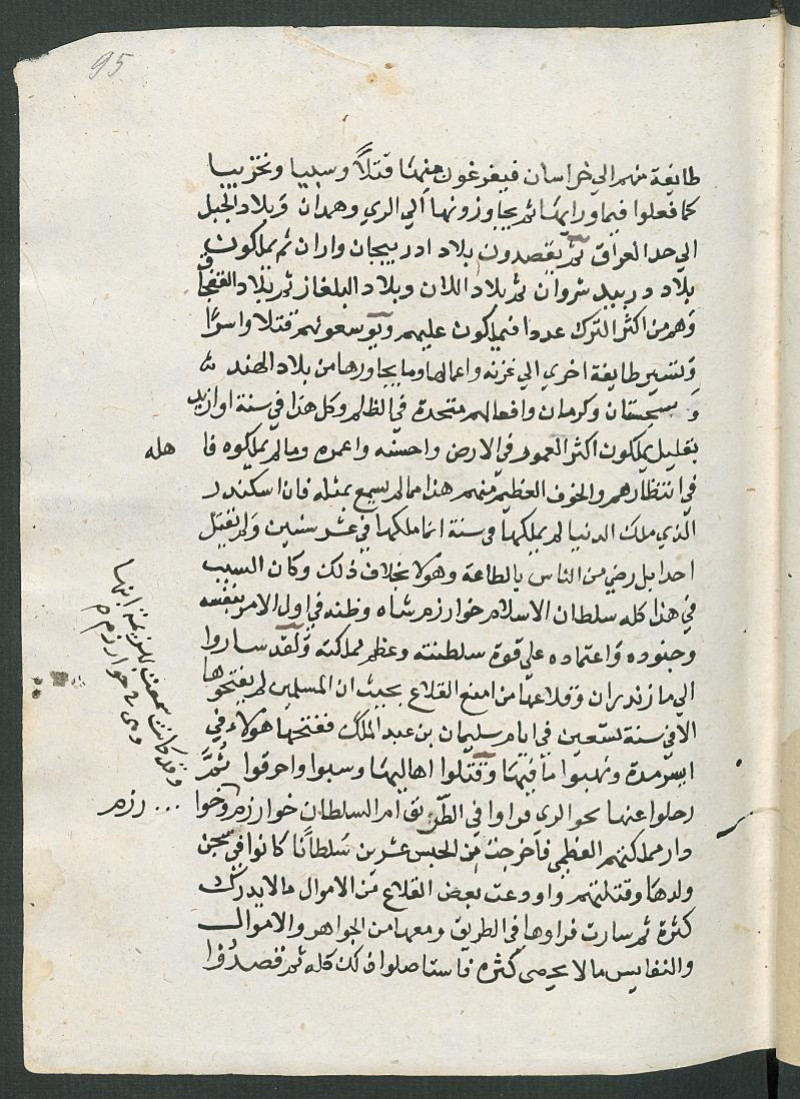 95
طايفة منهم الي خراسان فيفرغون منها قتلاً وسبيا وتخريبا
كما فعلوا فيما ورايها ثم يجاوزونها الي الري وهمدان وبلاد الجبل
الي حد العراق ثم يقصدون بلاد ادربيجان واران ثم يملكون
بلاد دربيد شروان ثم بلاد اللان وبلاد البلغاز ثم بلاد القفجاق
وهم من اكثر الترك عددا فيملكون عليهم ويوسعونهم قتلا واسرًا
وتسير طايفة اخري الي غزنه واعمالها وما يجاورها من بلاد الهند
وسجستان وكرمان وافعالهم متحدة في الظلم وكل هذا في سنة او ازيد
بقليل يملكون اكثر المعمور في الارض واحسنه واعمره ومالم يملكوه فا
هله
في انتظارهم والخوف العظيم منهم هذا مالم يسمع بمثله فان اسكندر
الذي ملك الدنيا لم يملكها في سنة انما ملكها في عشر سنين ولم يقتل
احدا بل رضي من الناس بالطاعة وهولا بخلاف ذلك وكان السبب
في هذا كله سلطان الاسلام خوارزم شاه وظنه في اول الامر بنفسه
وجنوده واعتماده علي قوة سلطنته وعظم مملكته ولقد ساروا
الي مازندران وقلاعها من امنع القلاع بحيث ان المسلمين لم يفتحوها
الا في سنة تسعين في ايام سليمان بن عبد الملك ففتحها هولاء في
ايسر مدة ونهبوا ما فيها وقتلوا اهاليها وسبوا واحرقوا ثُمَّ
رحلوا عنها نحو الري فراوا في الطريق ام السلطان خوارزم وخوا
... رزم
دار مملكتهم العظمي فاخرجت من الحبس عشرين سُلطانًا كانوا في سجن
ولدها وقتلتهم واودعت بعض القلاع من الاموال مالا يدرك
كثرة ثم سارت فراوها في الطريق ومعها من الجواهر والاموال
والنفايس مالا يحصي كثره فاستاصلوا ذلك كله ثم قصدُوا
وقد كانت سمعت بهزيمة ابنها
وهي في خوارزم